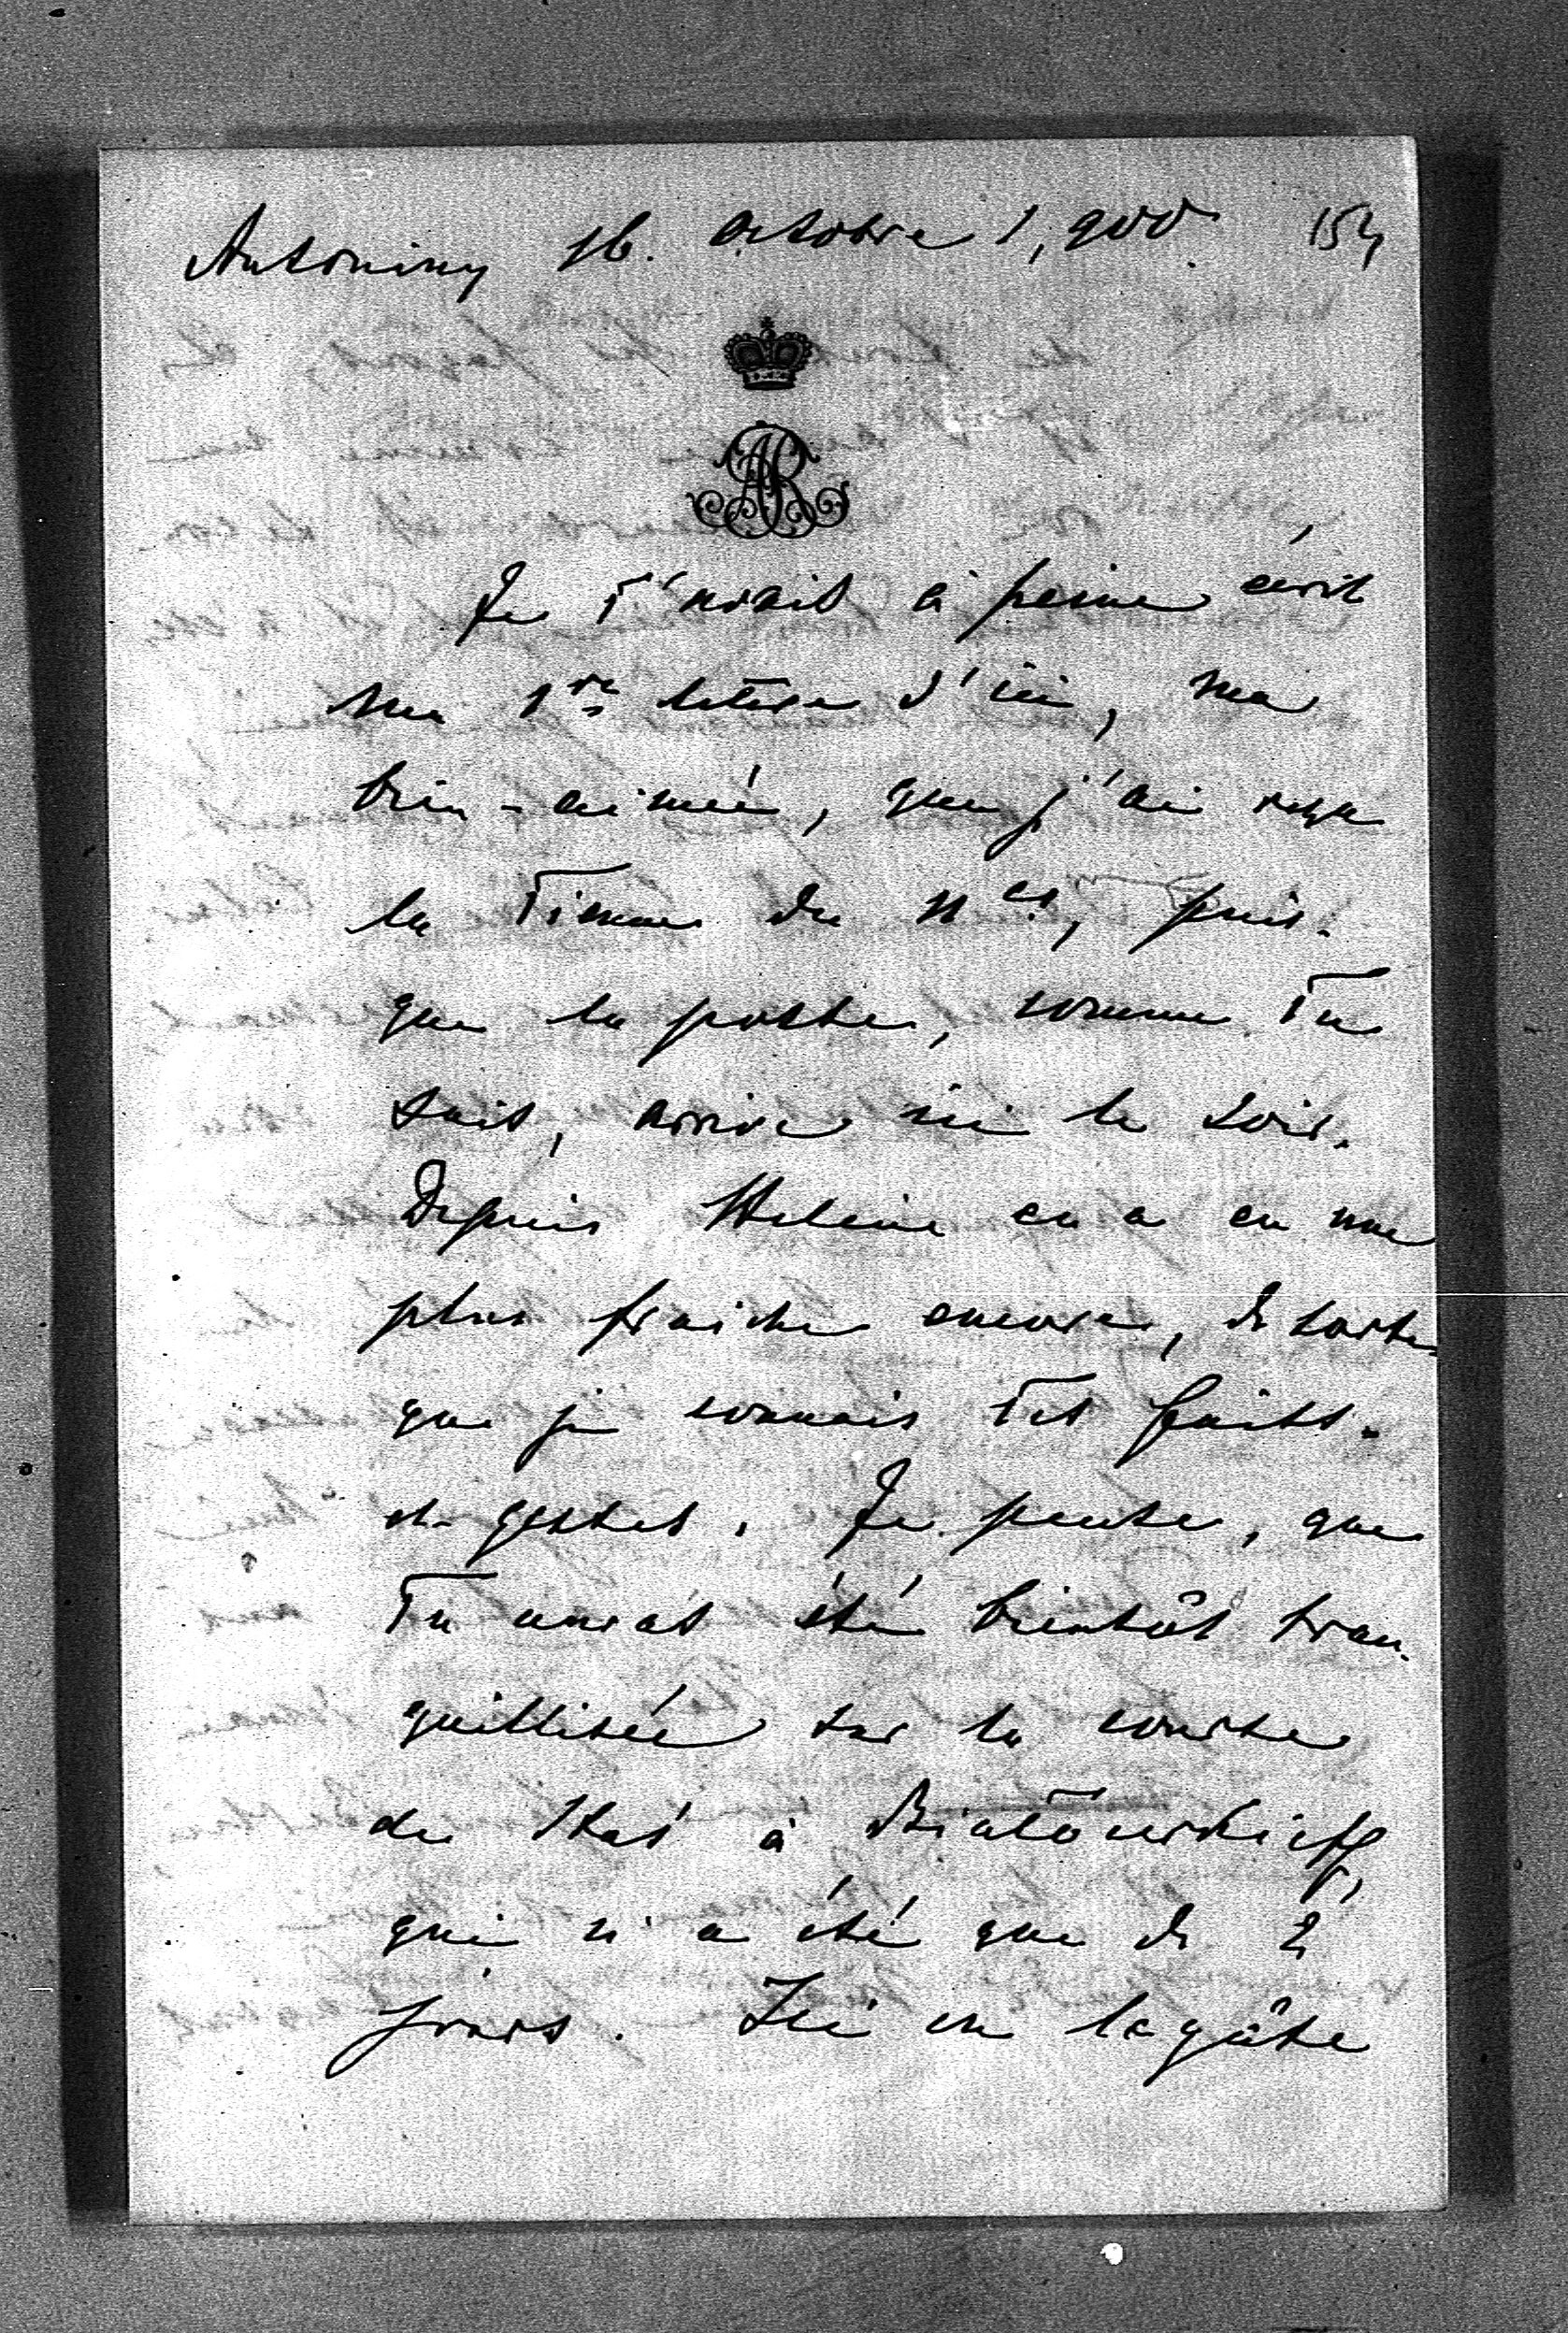 Antoniny 16. Octobre 1,900. 154
AR
Je T'avais à peine écrit
ma 1re lettre d'ici, ma
bien-aimée, que j'ai reçu
la Tienne du 11 ct, puis-
que la poste, comme Tu
sais, arrive ici le soir.
Depuis Helene en a eu une
plus fraiche encore, de sorte
que je connais Tes faits-
et-gestes. Je pense, que
Tu auras été bientôt tran-
quillisée sur la course
de Staś à Białocerkieff,
qui n'a été que de 2
jours. Ici on le gâte